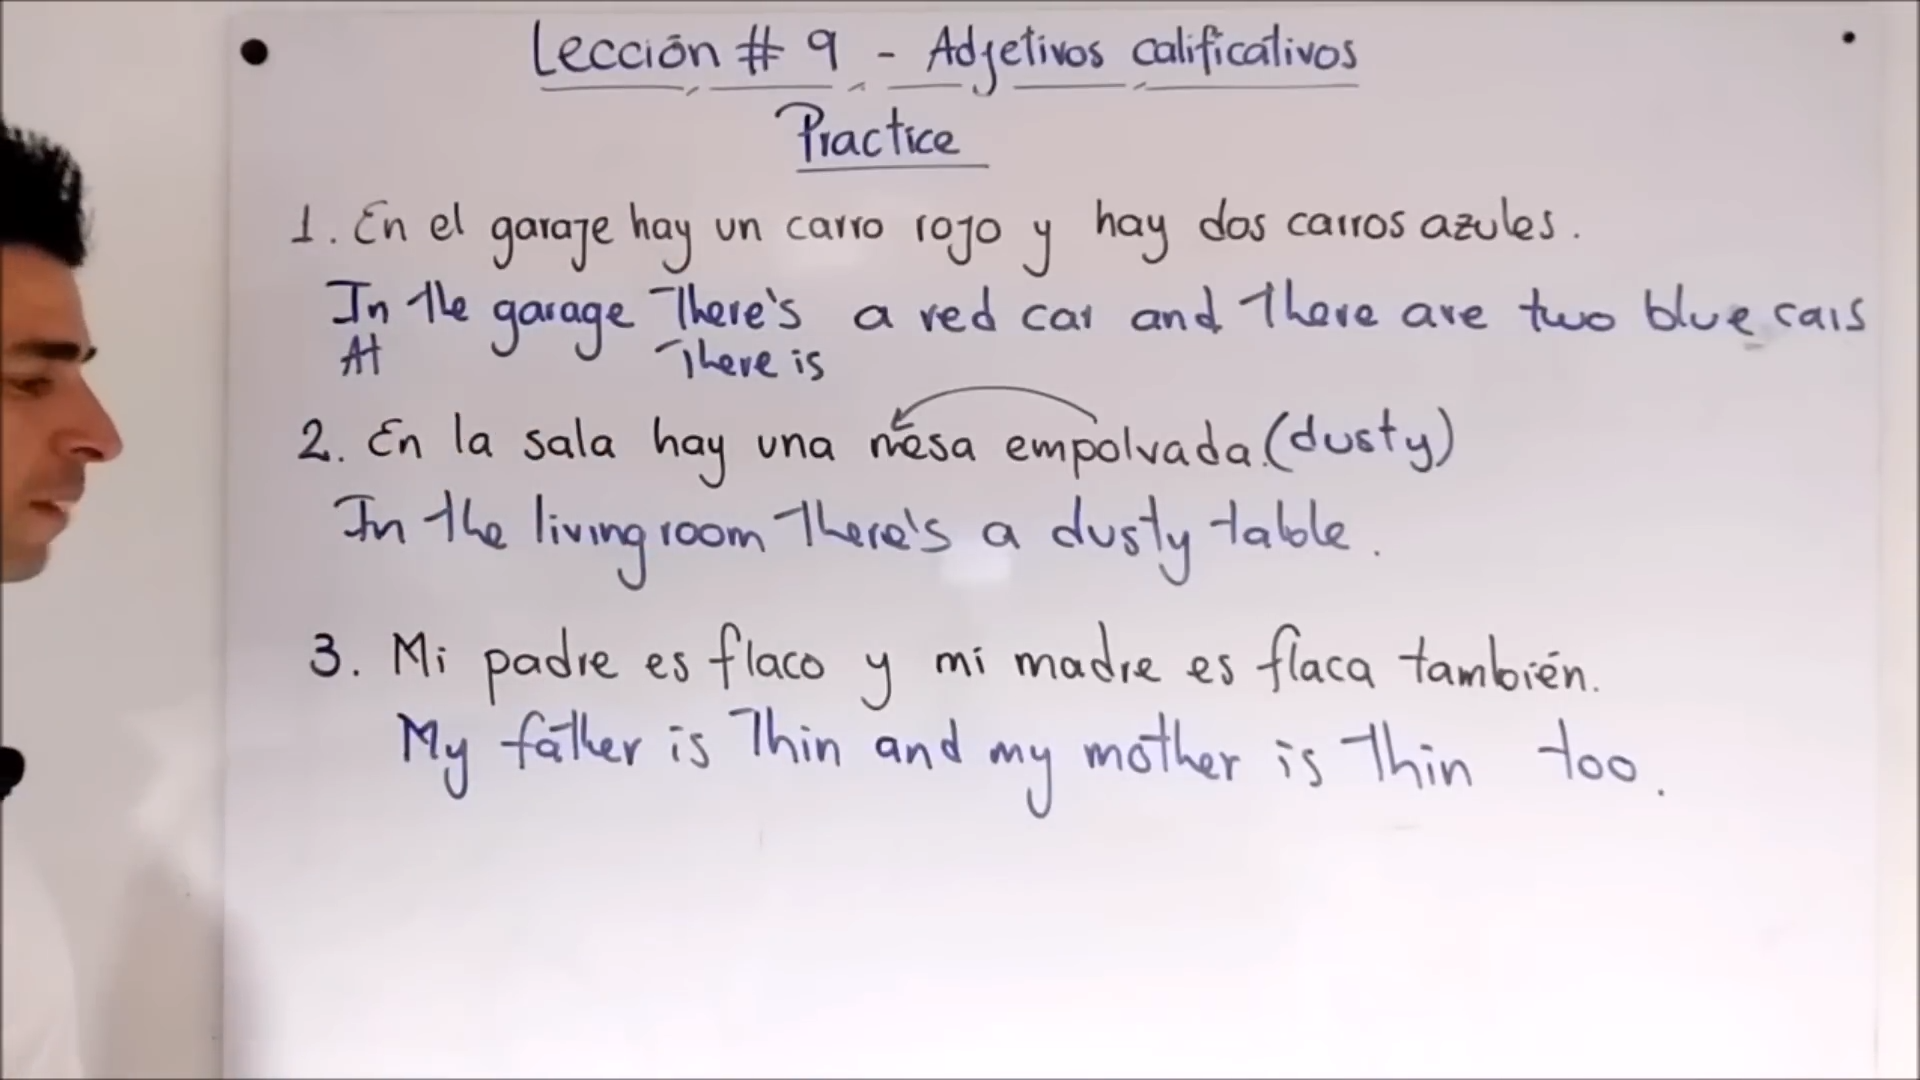 Lección # 9 - Adjetivos calificativos
Practice
1. En el garaje hay un carro rojo y hay dos carros azules.
In the garage There's a red car and there are two blue cars
At There is
2. En la sala hay una mesa empolvada. (dusty)
In the living room there's a dusty table.
3. Mi padre es flaco y mi madre es flaca también.
My father is thin and my mother is thin too.